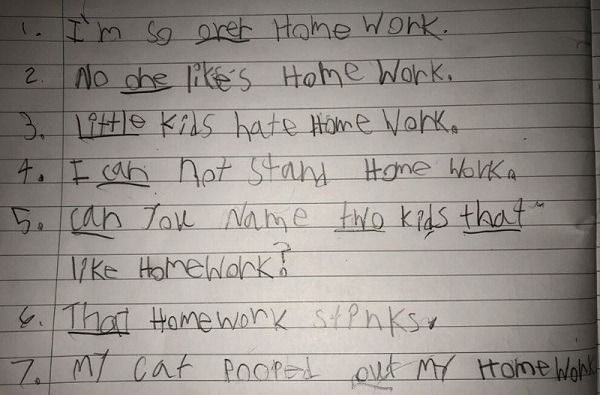 1. I'm so over Home Work.
2. No one like's Home Work.
3. Little kids hate Home Work.
4. I can not stand Home Work.
5. can you Name two kids that
like HomeWork?
6. That Homework stinks.
7. My cat pooped out My HomeWork